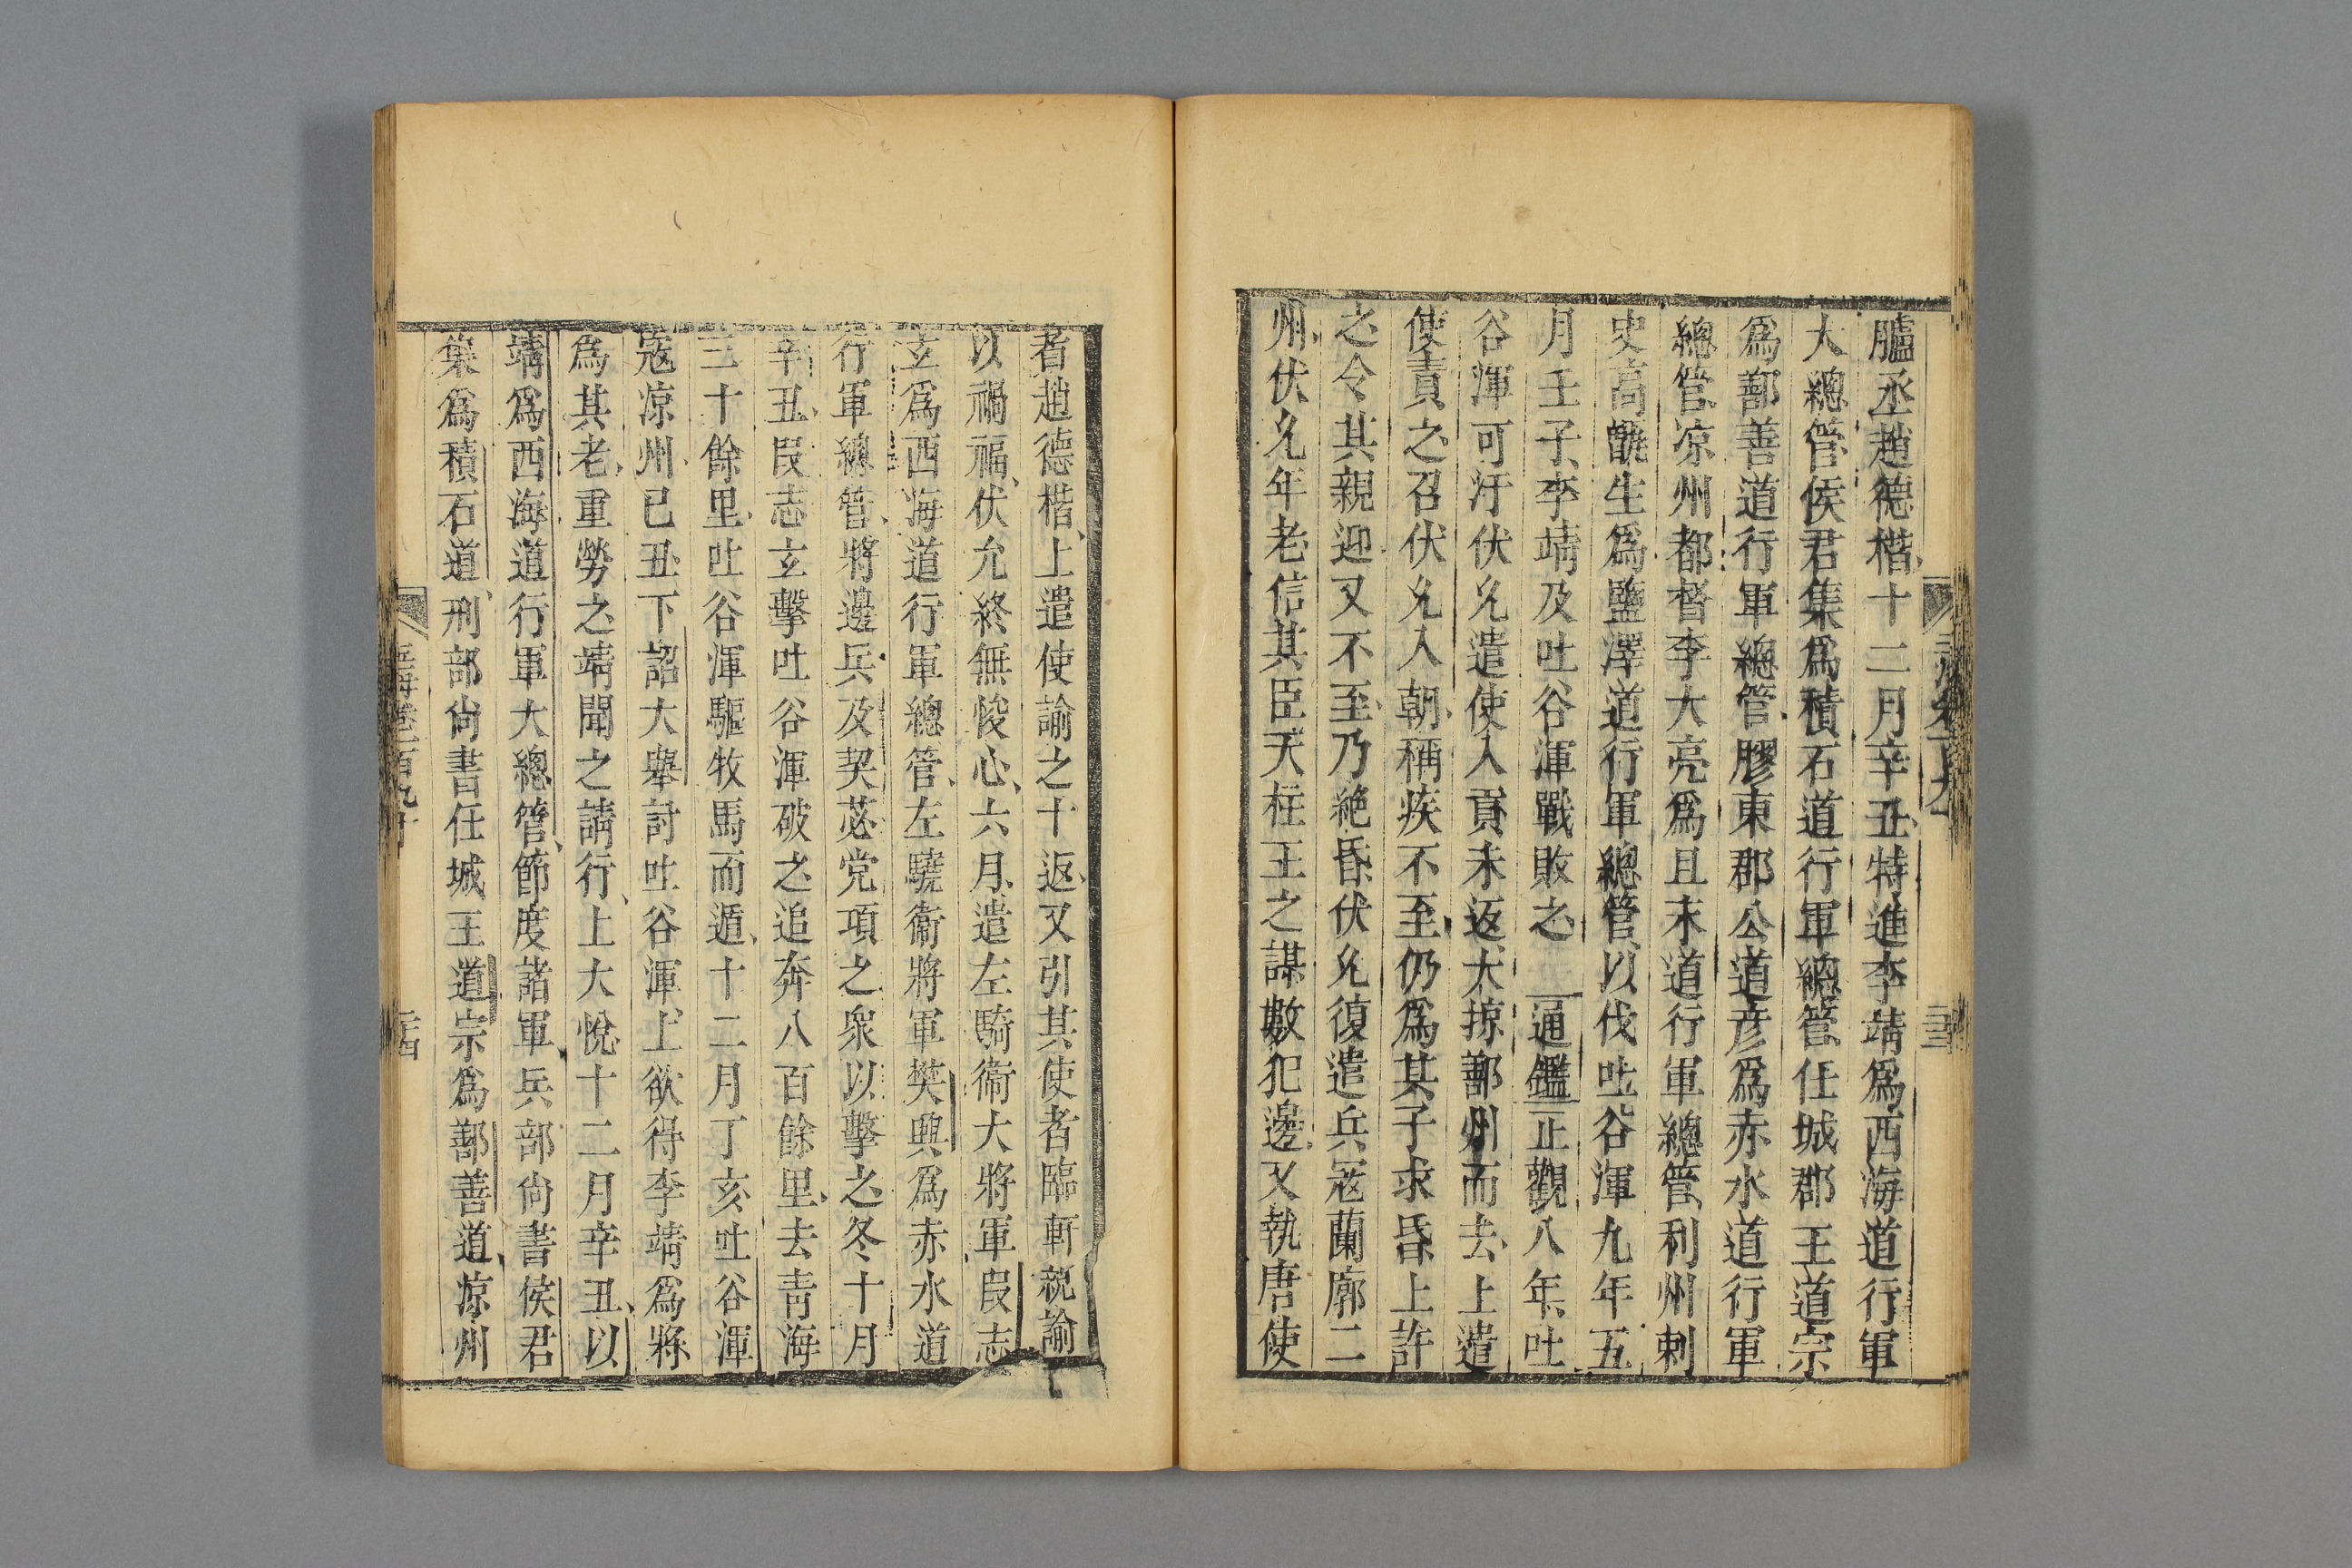 臚丞趙德楷十二月辛丑特進李靖爲西海道行軍
大總管侯君集爲積石道行軍總管任城郡王道宗
爲鄯善道行軍總管膠東郡公道彦爲赤水道行軍
總管凉州都督李大亮爲且末道行軍總管利州刺
史高甑生爲鹽澤道行軍總管以伐吐谷渾九年五
月壬子李靖及吐谷渾戰敗之 通鑑正觀八年吐
谷渾可汗伏允遣使入貢未返大掠鄯州而去上遣
使責之召伏允入朝稱疾不至仍爲其子求昏上許
之令其親迎又不至乃絶昏伏允復遣兵宼蘭廓二
州伏允年老信其臣天柱王之謀數犯邊又執唐使
者趙德楷上遣使諭之十返又引其使者臨軒親諭
以禍福伏允終無悛心六月遣左驍衞大將軍叚志
玄爲西海道行軍總管左驍衞將軍樊興爲赤水道
行軍總管將邊兵及契苾党項之衆以擊之冬十月
辛丑叚志玄擊吐谷渾破之追奔八百餘里去青海
三十餘里吐谷渾驅牧馬而遁十二月丁亥吐谷渾
宼凉州已丑下詔大舉討吐谷渾上欲得李靖爲將
爲其老重勞之靖聞之請行上大悅十二月辛丑以
靖爲西海道行軍大總管節度諸軍兵部尙書侯君
集爲積石道刑部尙書任城王道宗爲鄯善道凉州
卷一百九十